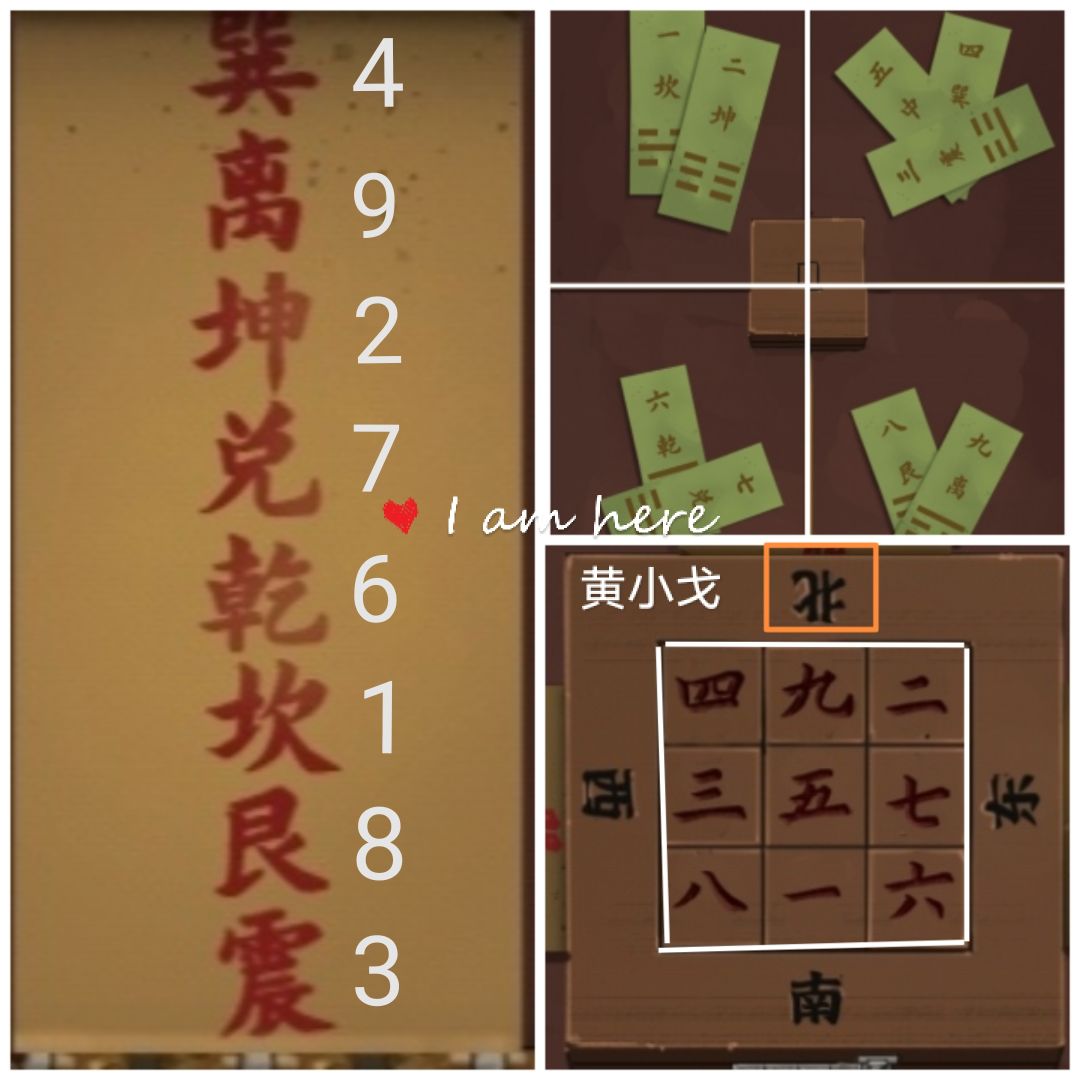 巽 4
离 9
坤 2
兑 7
乾 6
坎 1
艮 8
震 3
一 坎
二 坤
五 中
四 巽
三 震
六 乾
七 兑
八 艮
九 离
I am here
黄小戈
北
四 九 二
西 三 五 七 东
八 一 六
南